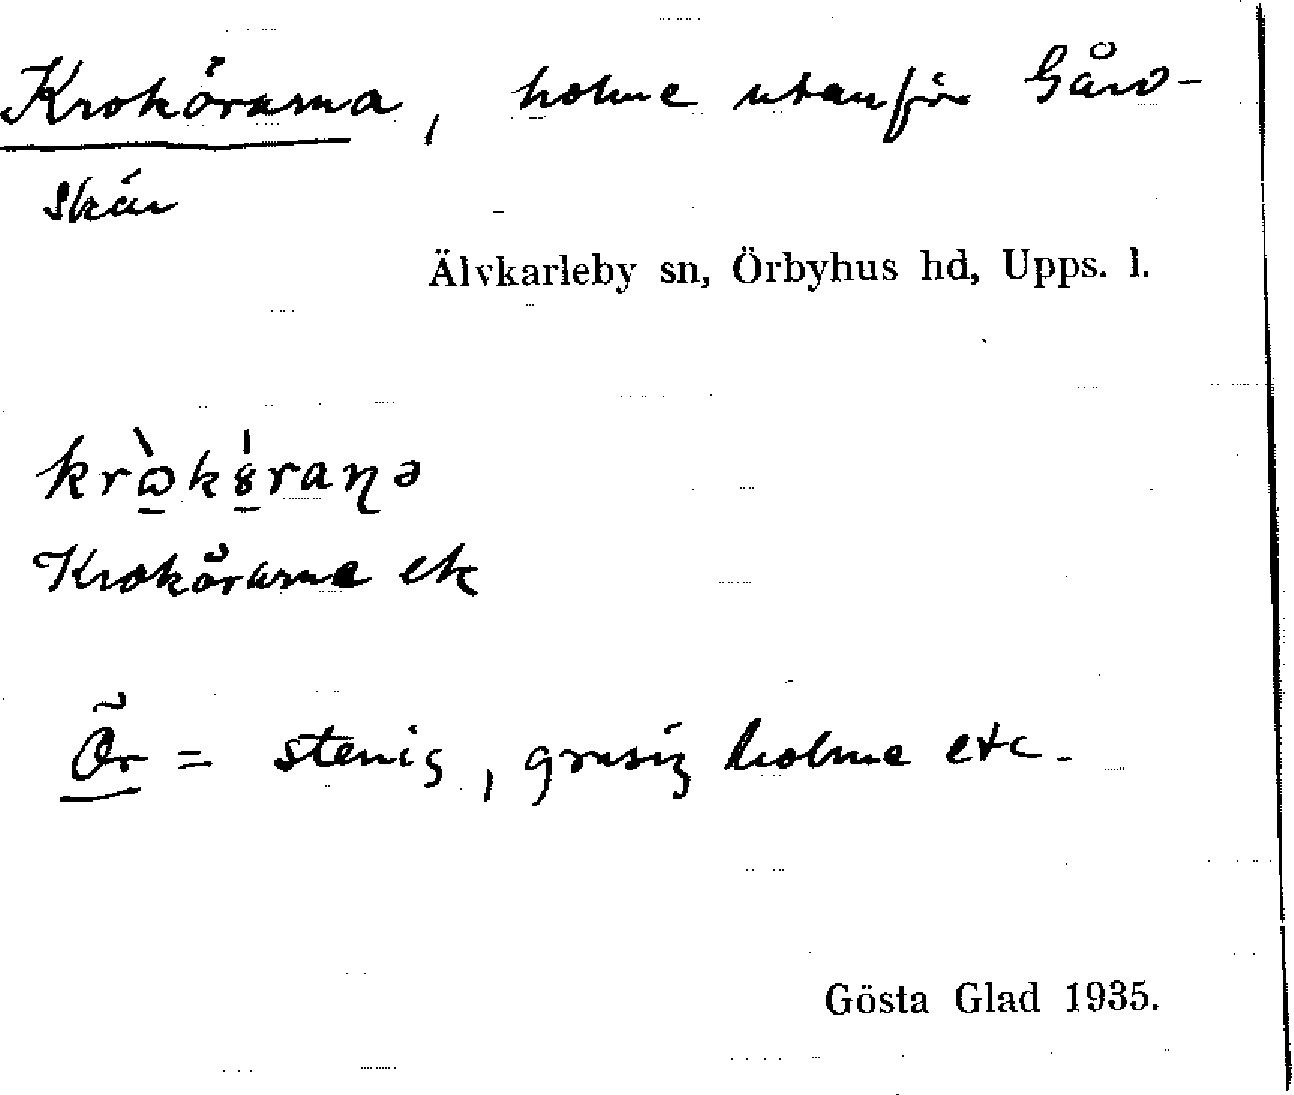 Krokörarna, holme utanför Gård-
skär
Älvkarleby sn, Örbyhus hd, Upps. l.
krὼ̱kö̱́raɳə
Krokörarna ek
Ör = stenig, grusig holme etc.
Gösta Glad 1935.